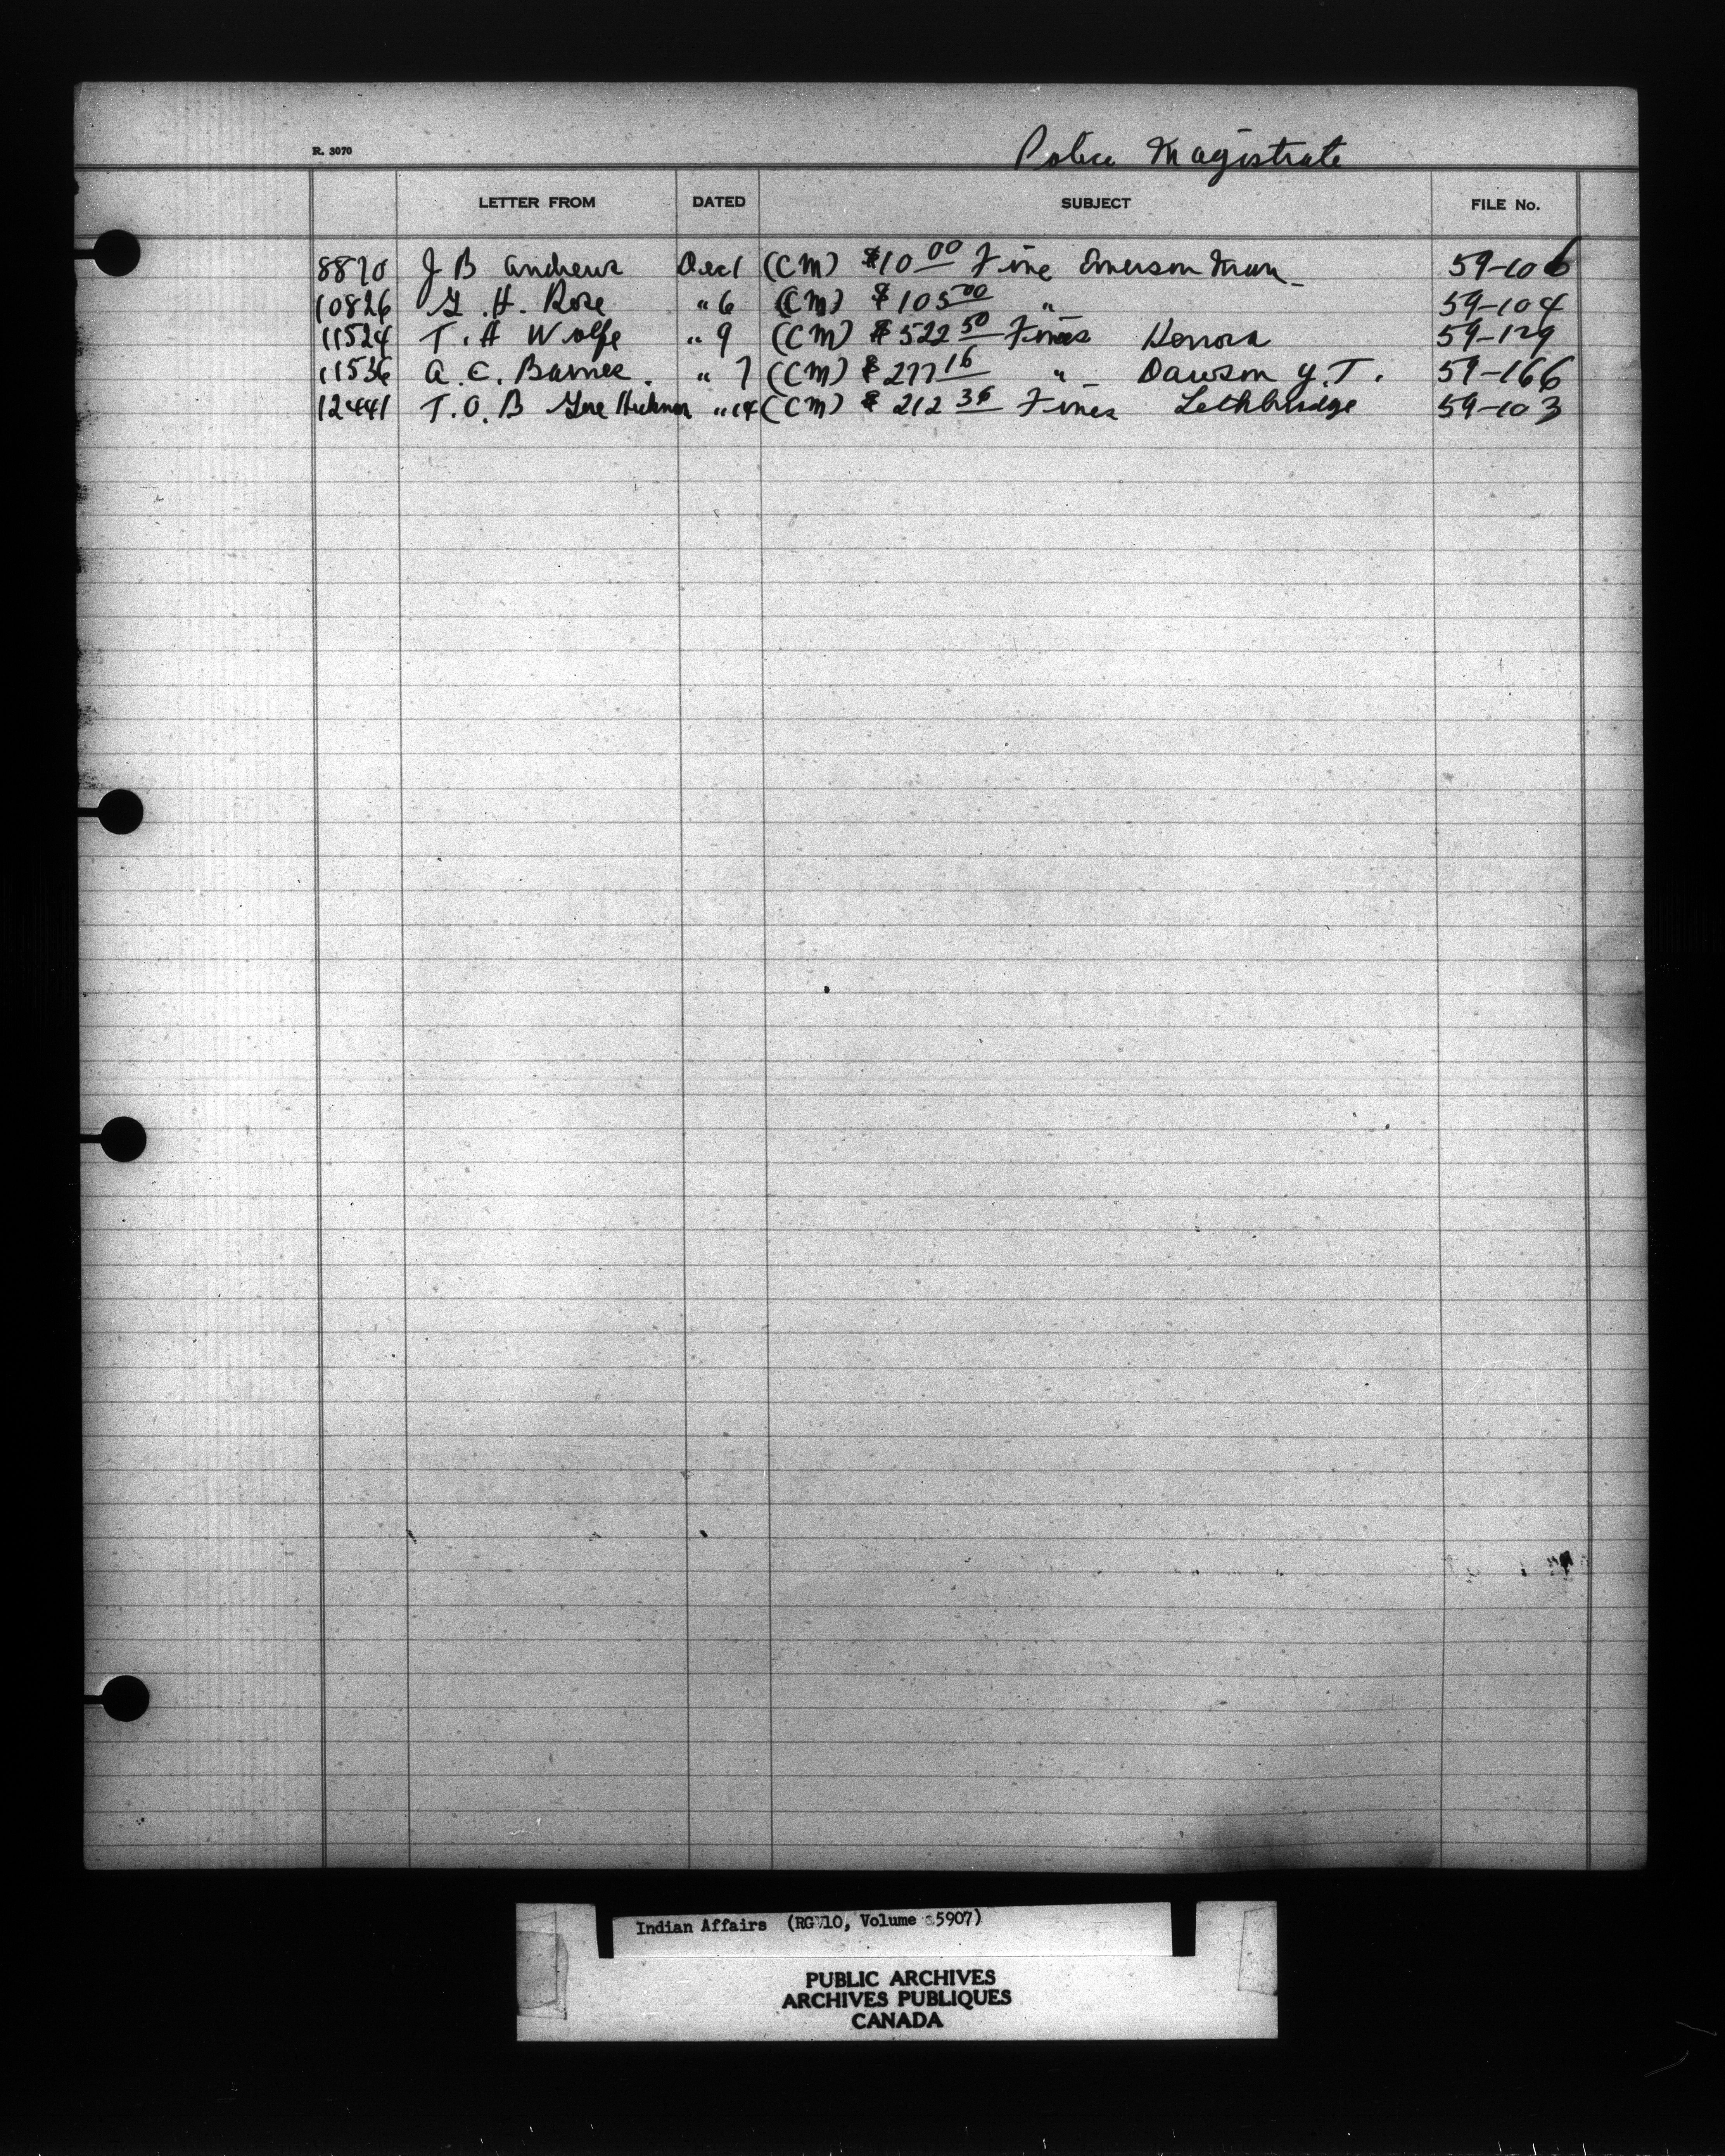 R. 3070
Police Magistrate
LETTER FROM DATED SUBJECT FILE No.
8870 J B Andrews Dec 1 (CM) $10 00 Fine Emerson Man 59-106
10826 G. H. Rose " 6 (CM) $105 00 " 59-104
11524 T. A Wolfe " 9 (CM) $522 50 Fines Kenora 59-129
11536 A. E. Barnes. " 7 (CM) $277 16 " Dawson Y.T. 59-166
12441 T. O. B Gore Hickman " 14 (CM) $212 36 Fines Lethbridge 59-103
Indian Affairs (RG 10, Volume 5907)
PUBLIC ARCHIVES
ARCHIVES PUBLIQUES
CANADA